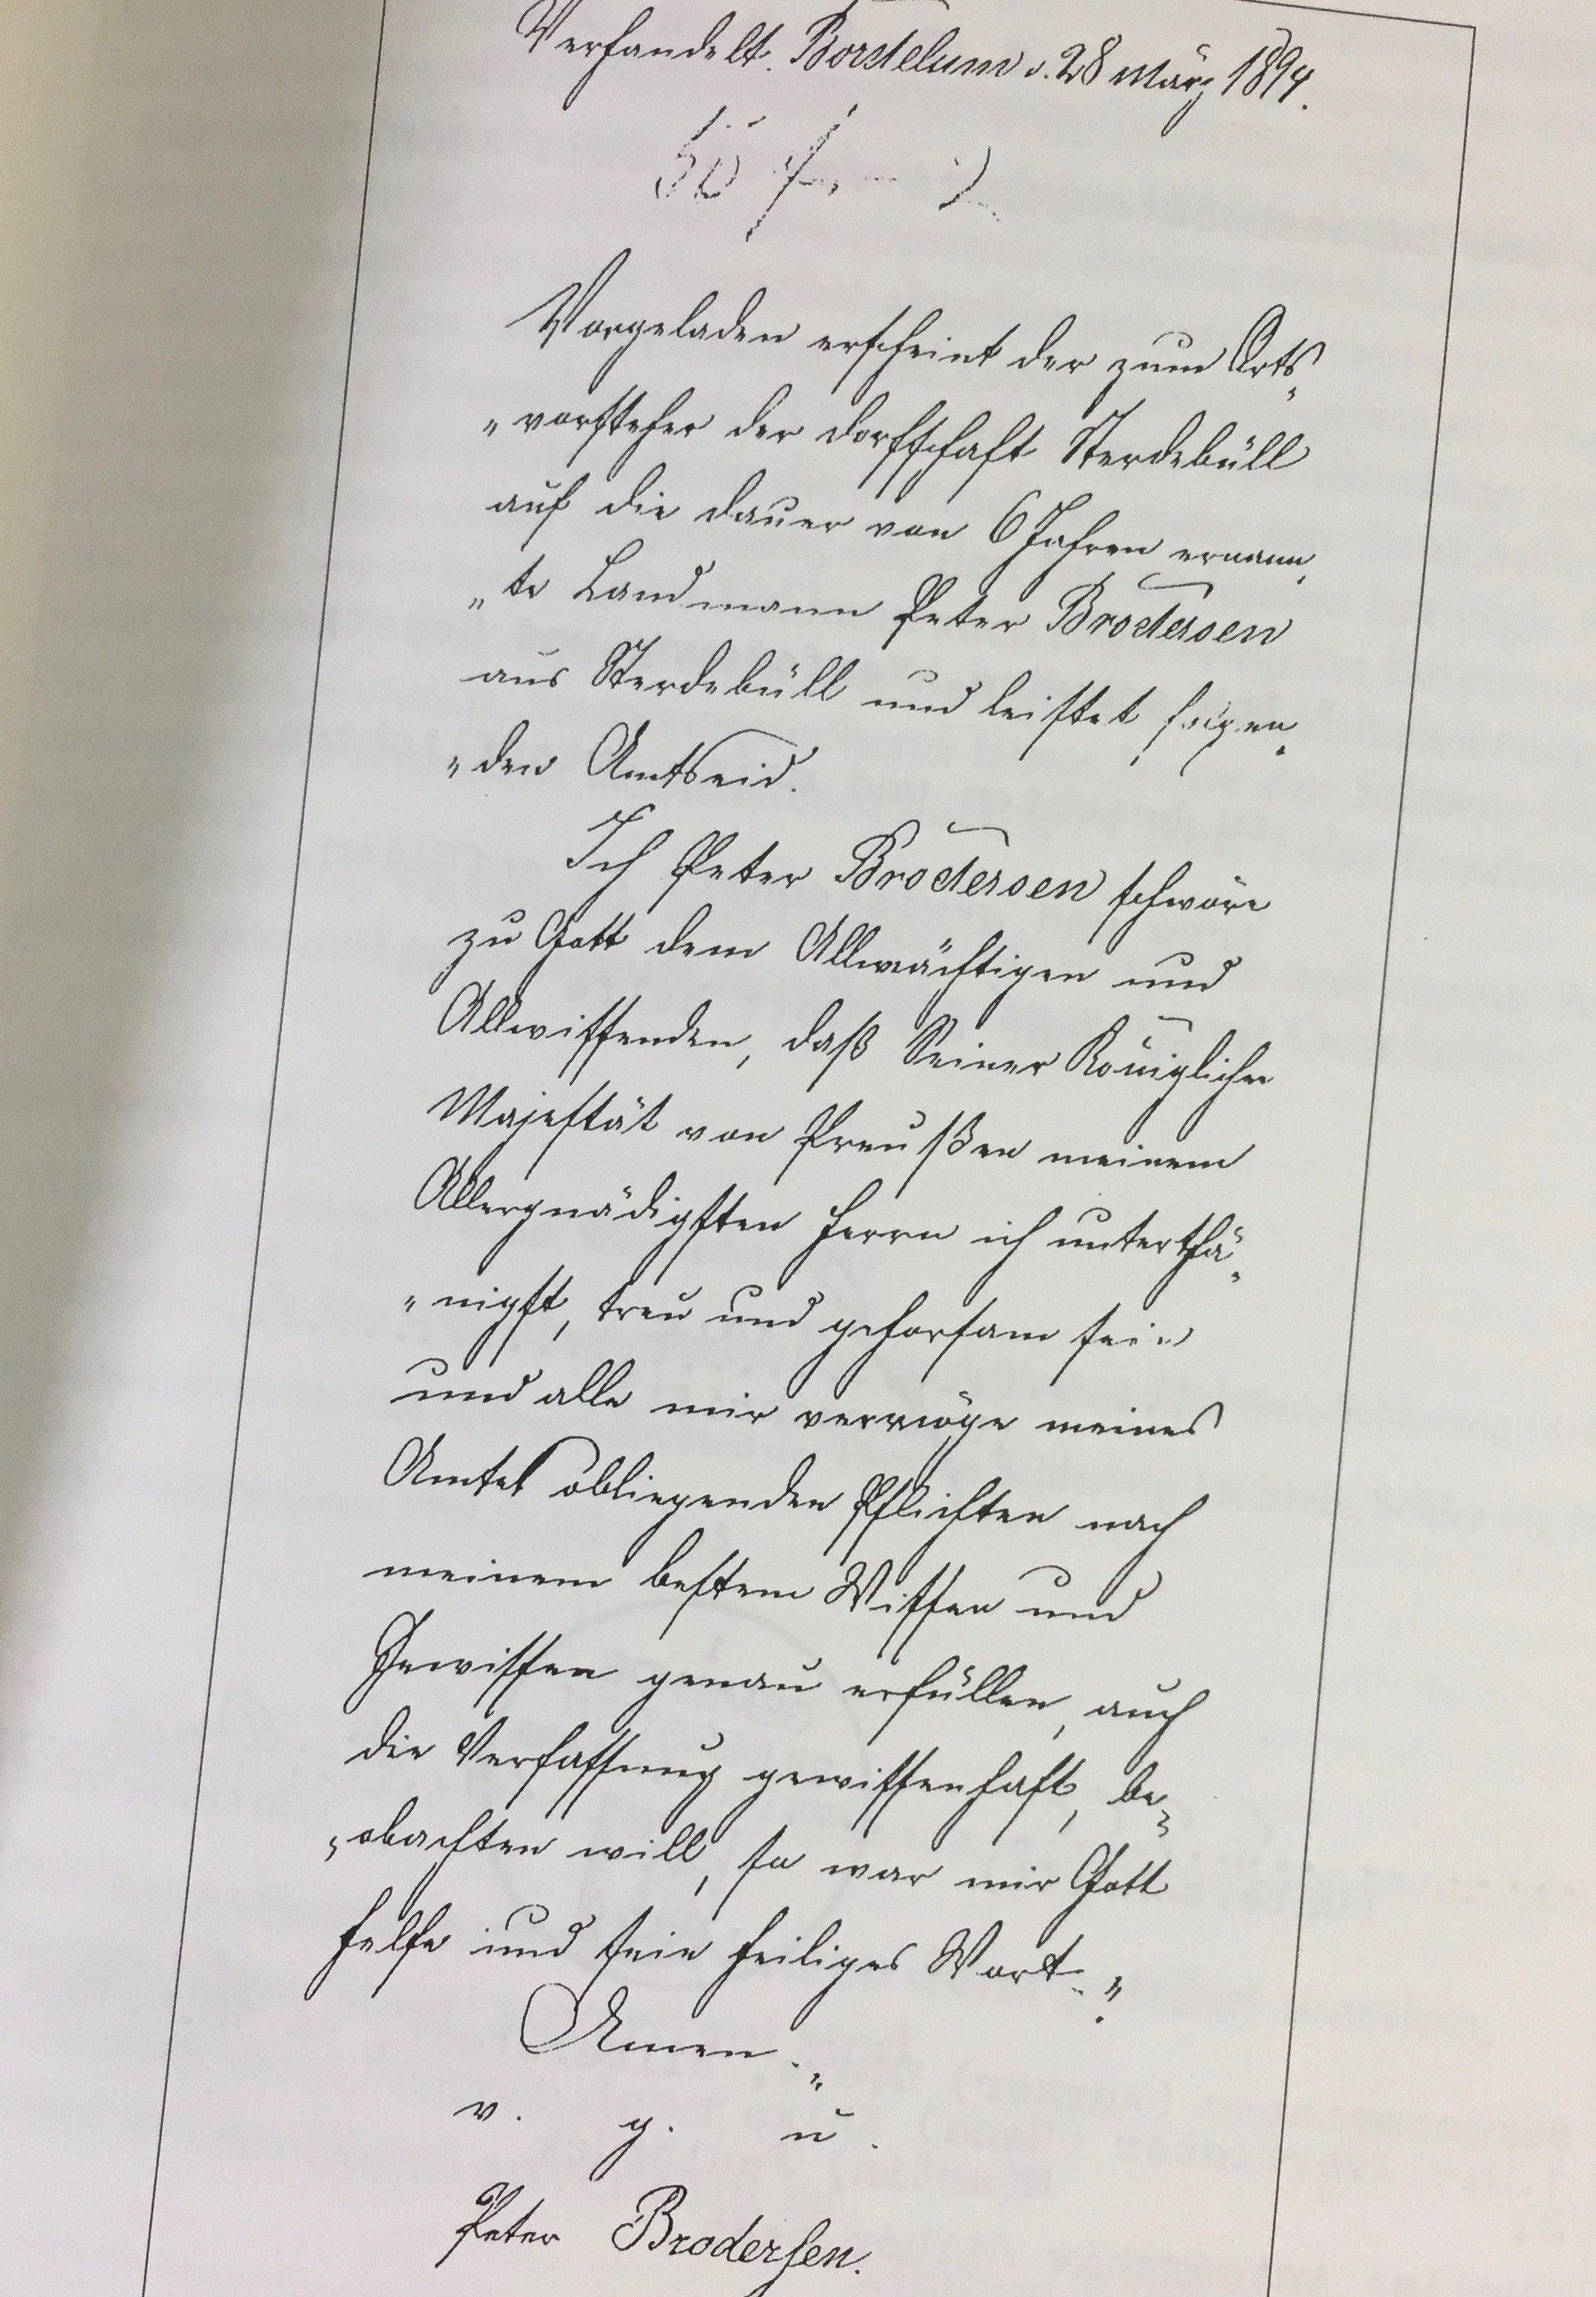 Verhandelt. Bordelum d. 28 März 1894.
50
Vorgeladen erscheint der zum Orts-
"vorsteher der Dorfschaft Sterdebüll
auf die Dauer von 6 Jahren ernann-
"te Landmann Peter Brodersen
aus Sterdebüll und leistet folgen-
"den Amtseid.
Ich Peter Brodersen schwöre
zu Gott dem Allmächtigen und
Allwissenden, daß Seiner Königlichen
Majestät von Preußen meinem
Allergnädigsten Herrn ich unterthä-
"nigst, treu und gehorsam sein
und alle mir vermöge meines
Amtes obliegenden Pflichten nach
meinem bestem Wissen und
Gewissen genau erfüllen, auch
die Verfassung gewissenhaft, be-
"obachten will, so war mir Gott
helfe und sein heiliges Wort."
Amen."
v. g. u.
Peter Brodersen.